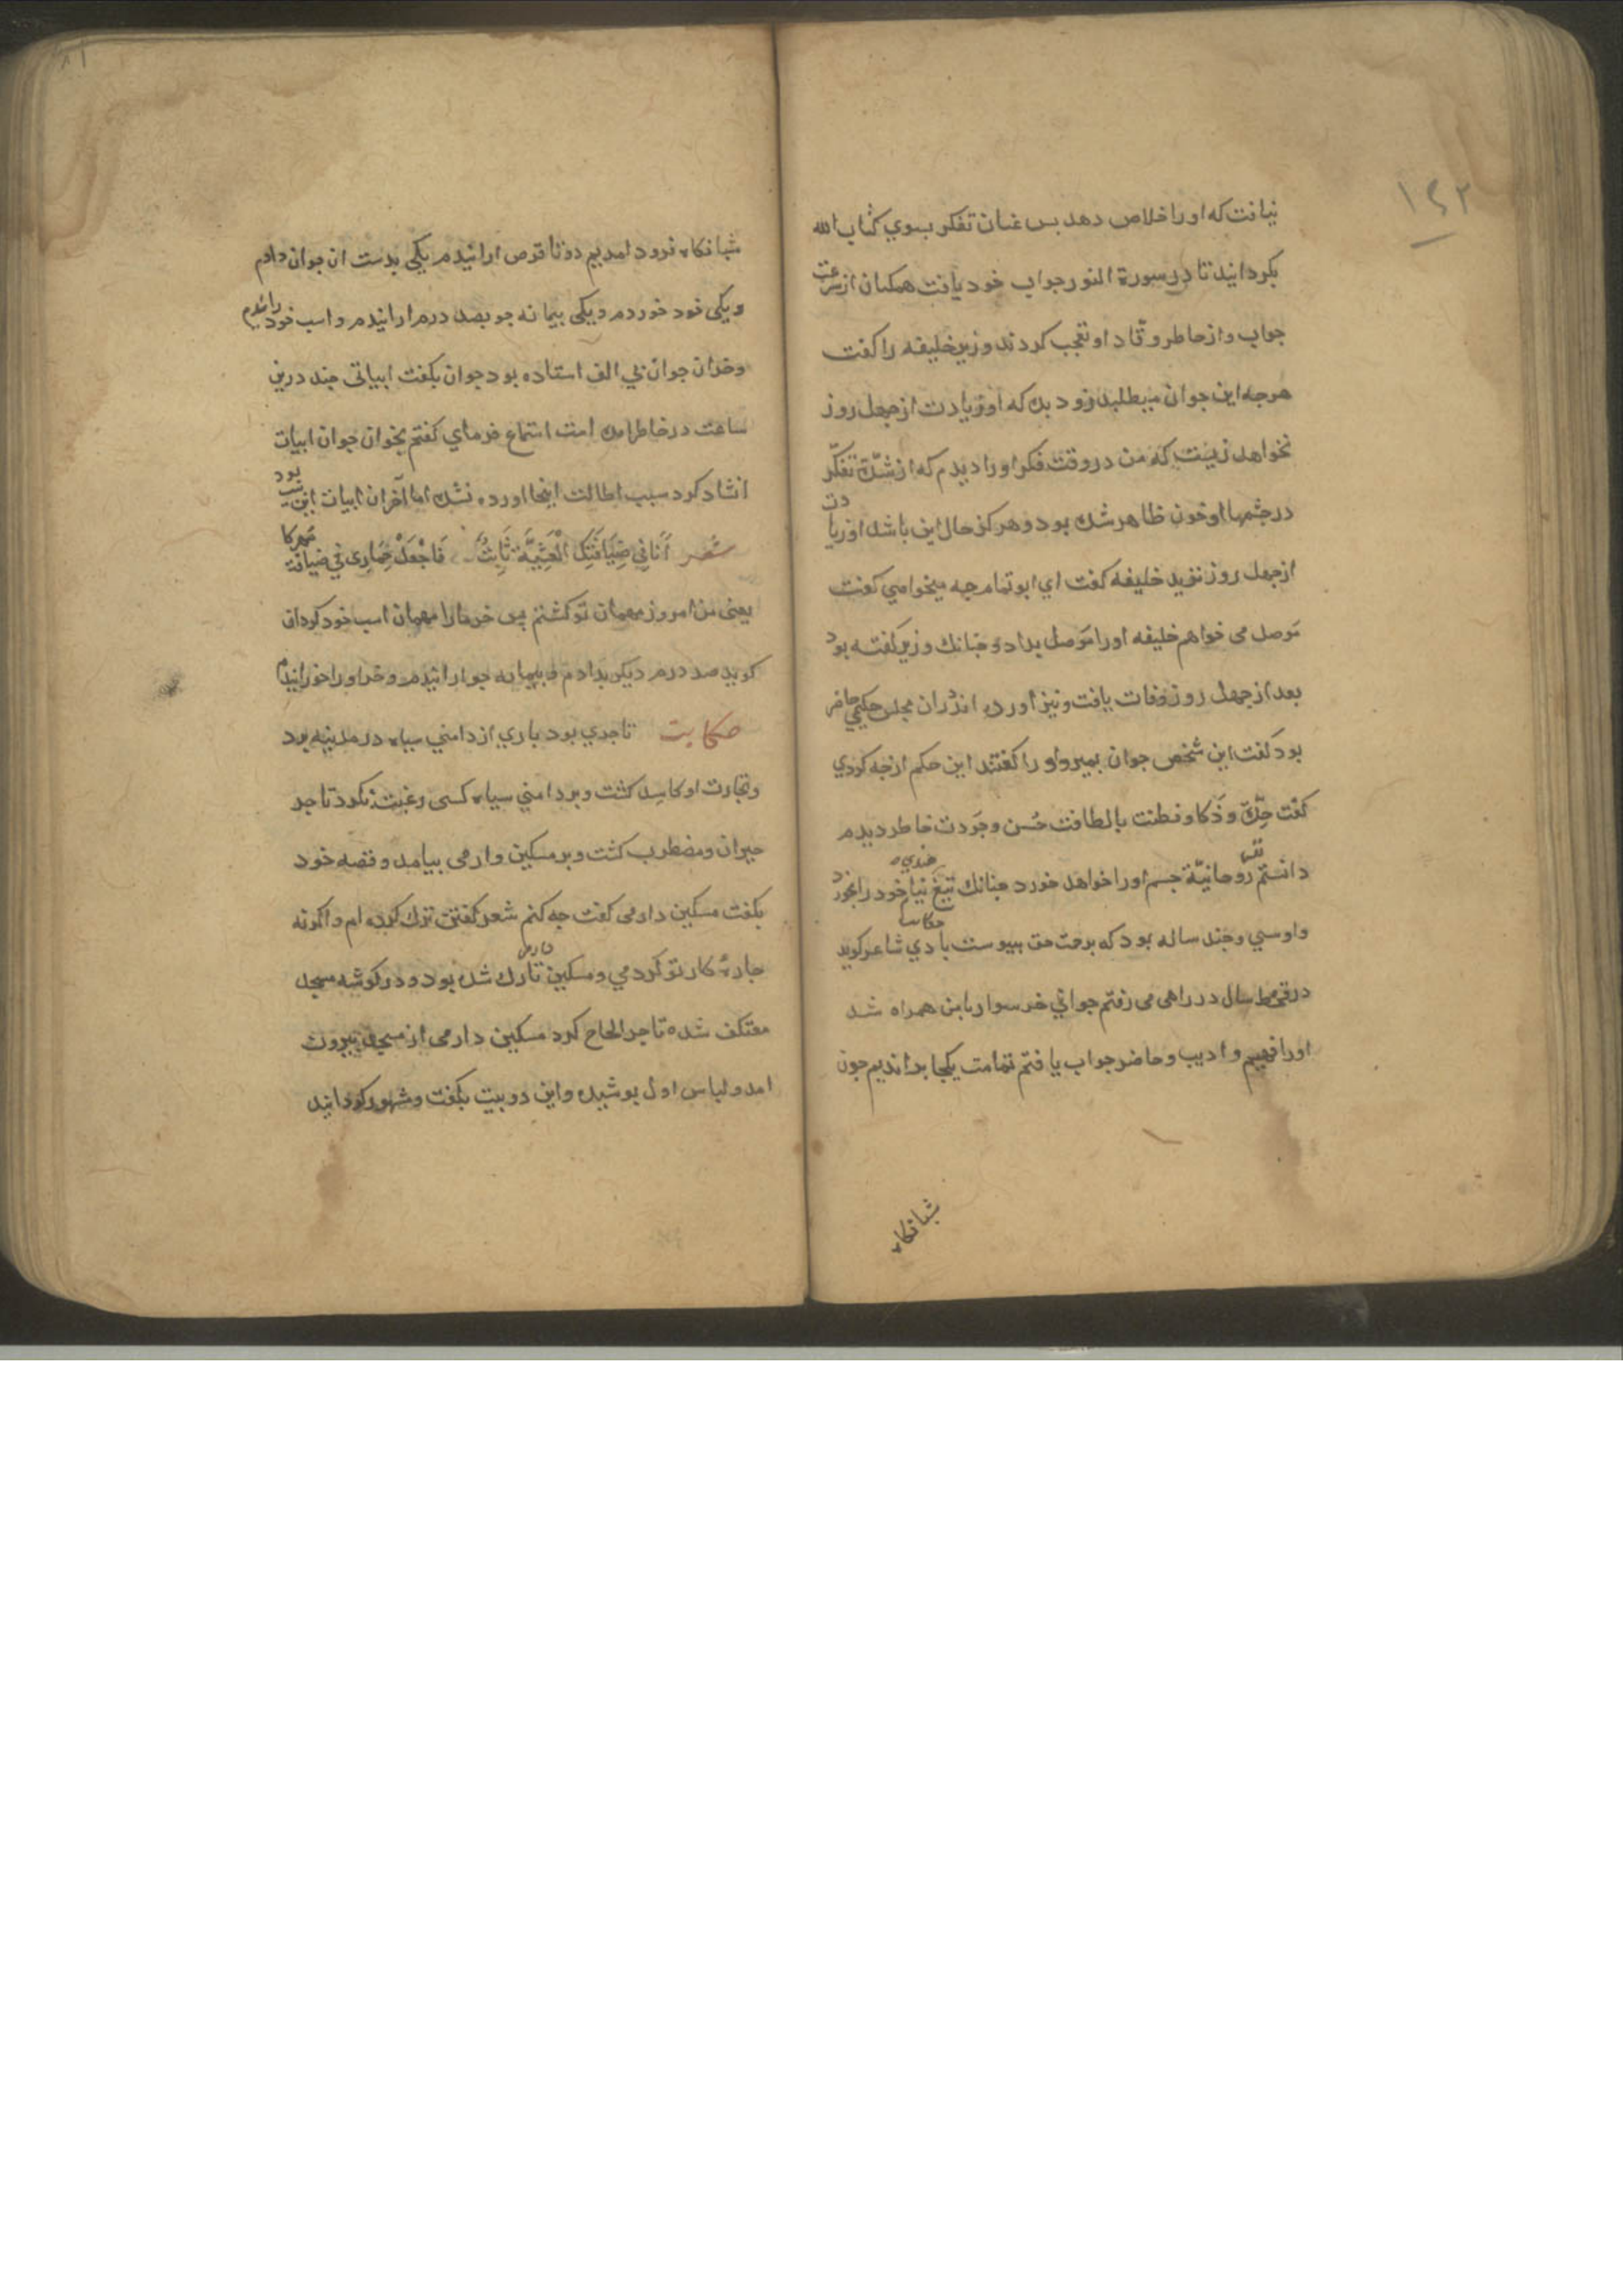 ۱۴۲
نیافت که او را خلاص دهد بس عنان تفکر بسوي کتاب الله
بکردانید تا در سورة النور جواب خود یافت همکنان از سرعت
جواب و از خاطر وقّاد او تعجب کردند وزیر خلیفه را کفت
هرجه این جوان میطلبد زود بده که او زیادت از جهل روز
نخواهد زیست که من در وقت فکر او را دیدم که از شدّة تفکّر
در جشمهاء او خون ظاهر شده بود و هر کرا حال این باشد او زیادت
از جهل روز نزید خلیفه کفت اي ابو تمام جه میخواهي کفت
موصل می خواهم خلیفه او را موصل بداد و جنانك وزیر کفته بود
بعد از جهل روز وفات یافت و نیز آورده اند در ان مجلس حکیمي حاضر
بود کفت این شخص جوان بمیرد او را کفتند این حکم از جه کردي
کفت حدّة و ذکا و فطنت با لطافت حسن و جودت خاطر دیدم
دانستم نفس روحانیّة جسم او را خواهد خورد جنانك تیغ هندي نیام خود را بخورد
و او سي و جند ساله بود که برحمت حق بیوست حکایت بادي شاعر کوید
در قحط سال در راهی می رفتم جواني خر سوار با من همراه شد
او را فهیم و ادیب و حاضر جواب یافتم تمامت یکجا براندیم جون
شبانکاه
۸۱
شبانکاه فرود امدیم دو تا قرص ارانیدم یکي بدست ان جوان دادم
و یکی خود خوردم و یکی بیمانه جو بصد درم ارانیدم و اسب خود را دادم
و خر ان جوان بي الف استاده بود جوان بکفت ابیاتی جند درین
ساعت در خاطر امده است استماع فرماي کفتم بخوان جوان ابیات
انشاد کرد سبب اطالت اینجا اورده نشد اما آخر ان ابیات این بیت بود
شعر أنا في ضيافتك العشيّة ثابتٌ فاجعل حماري في ضيافة مهركا
یعنی من امروز مهمان تو کشتم پس خر مارا مهمان اسب خود کردان
کوید صد درم دیکر بدادم و بیمانه جو ارانیدم و خر او را خورانیدم
حکایت تاجري بود باري از دامني سیاه در مدینه برد
و تجارت او کاسد کشت و بر دامني سیاه کسی رغبت نکرد تاجر
حیران و مضطرب کشت و بر مسکین دارمی بیامد و قصه خود
بکفت مسکین دارمی کفت جه کنم شعر کفتن ترك کرده ام و اکرنه
جارهٔ کار تو کردمي و مسکین دارمی تارك شده بود و در کوشه مسجد
معتکف شده تاجر الحاح کرد مسکین دارمی از مسجد بیرون
امد و لباس اول بوشیده و این دو بیت بکفت و مشهور کردانید